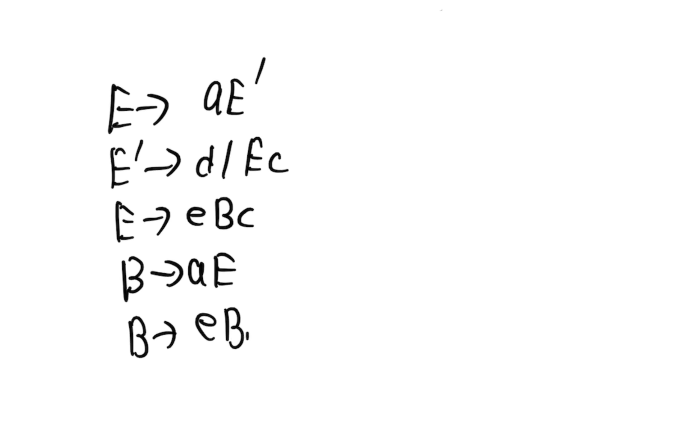 E→ aE'
E'→ d/Ec
E→ eBc
B→aE
B→ eB.